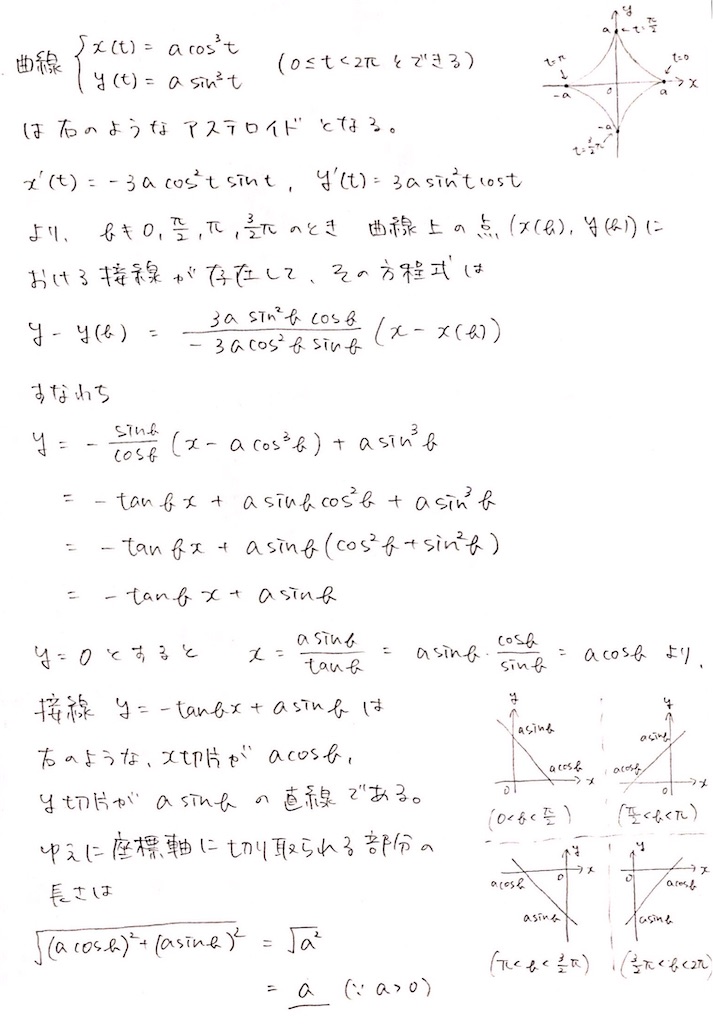 曲線 { x(t) = a cos³t
y(t) = a sin³t (0≦t<2π とできる)
は右のような アステロイド となる。
x'(t) = -3a cos²t sint, y'(t) = 3a sin²t cost
より、 θ≠0, π/2, π, 3/2π のとき 曲線上の点 (x(θ), y(θ)) に
おける接線が存在して、その方程式は
y - y(θ) = (3a sin²θ cosθ)/(-3a cos²θ sinθ) (x - x(θ))
すなわち
y = - sinθ/cosθ (x - a cos³θ) + a sin³θ
= - tanθ x + a sinθ cos²θ + a sin³θ
= - tanθ x + a sinθ (cos²θ + sin²θ)
= - tanθ x + a sinθ
y=0 とすると x = a sinθ/tanθ = a sinθ · cosθ/sinθ = a cosθ より、
接線 y = -tanθ x + a sinθ は
右のような、x切片が a cosθ,
y切片が a sinθ の直線である。
ゆえに座標軸に切り取られる部分の
長さは
√((a cosθ)² + (a sinθ)²) = √a²
= a (∵ a>0)
y
a
t=π/2
t=π
t=0
-a
0
a
x
-a
t=3/2π
y
a sinθ
a cosθ
0
x
(0<θ<π/2)
y
a sinθ
a cosθ
0
x
(π/2<θ<π)
y
0
x
a cosθ
a sinθ
(π<θ<3/2π)
y
x
0
a cosθ
a sinθ
(3/2π<θ<2π)